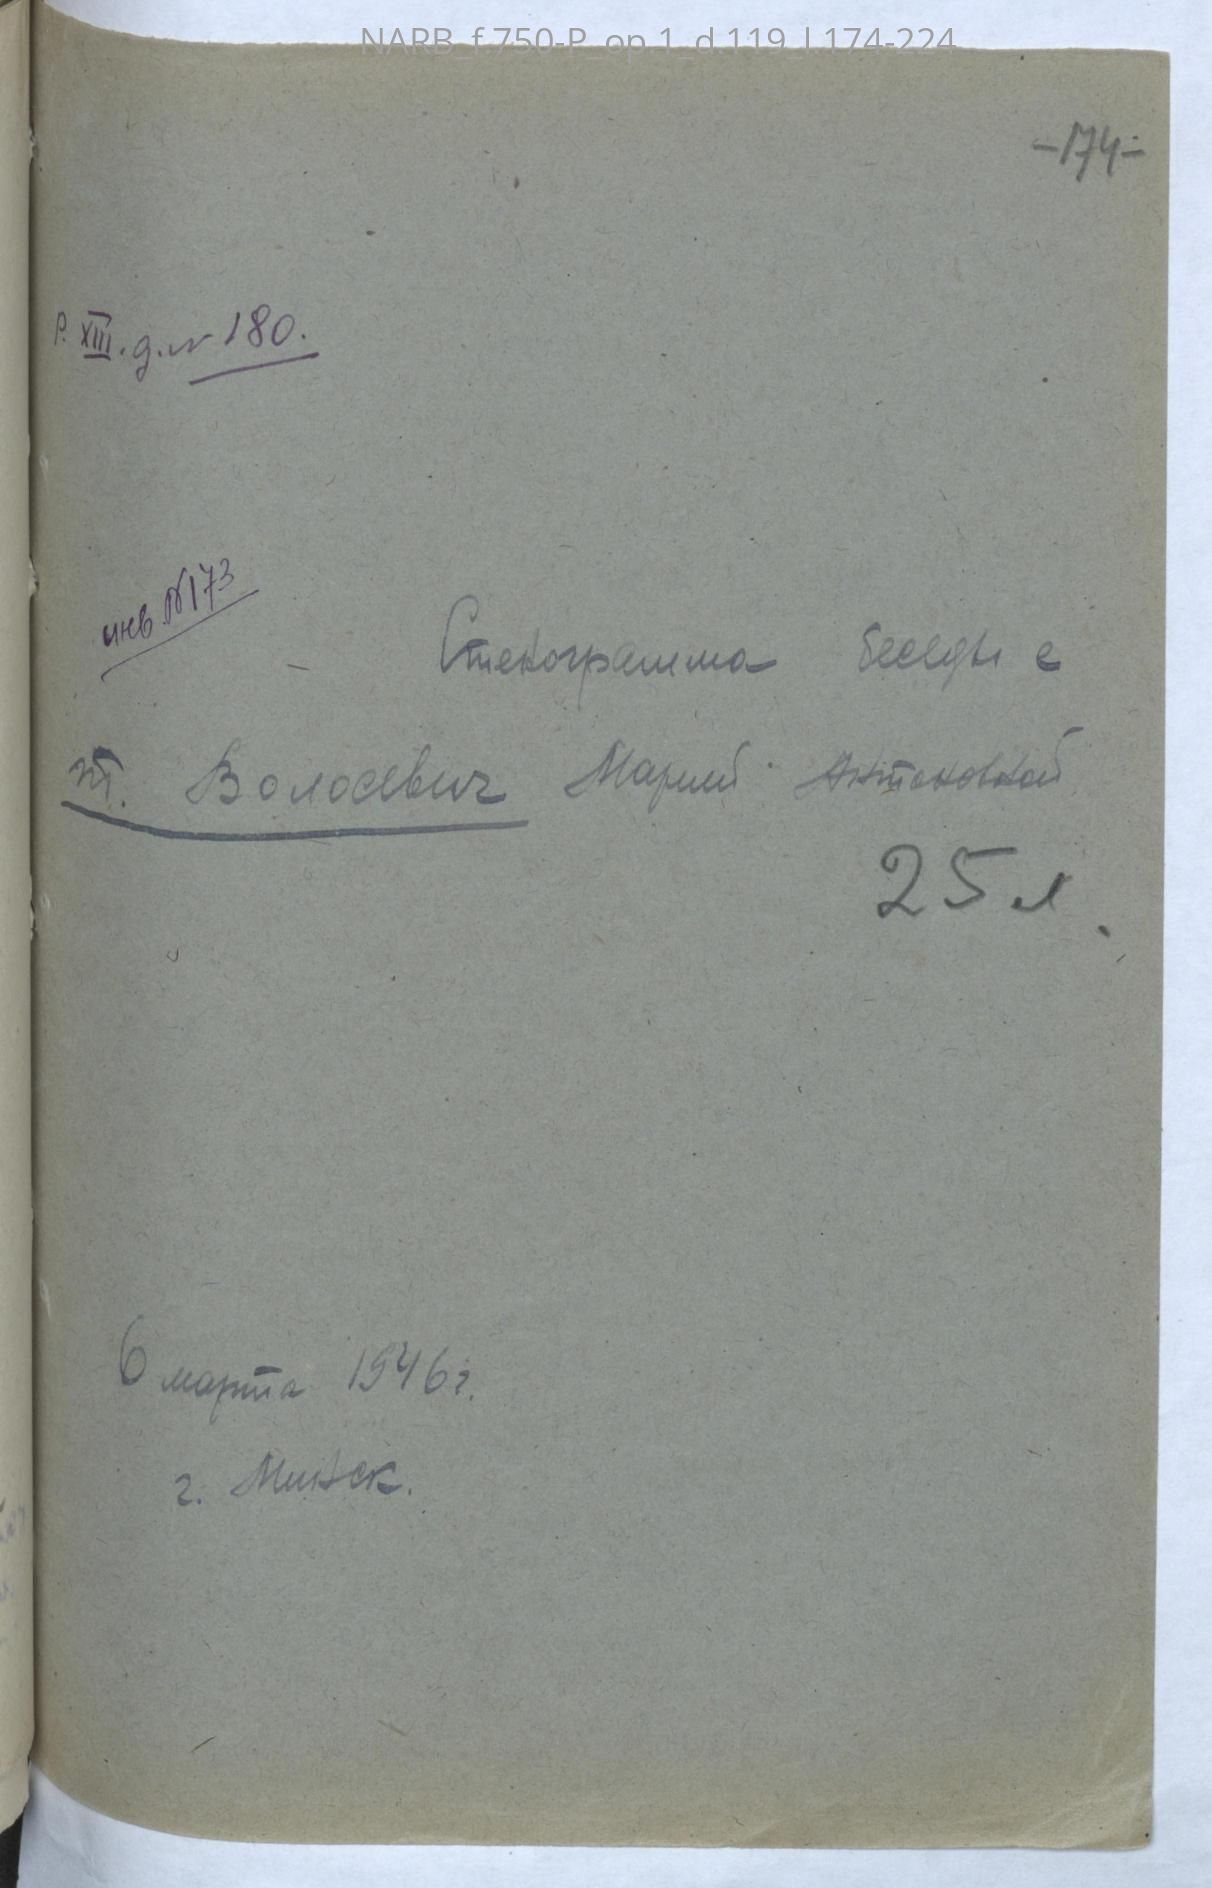 NARB_f.750-P_op.1_d.119_l.174-224
-174-
Р. XIII. д. № 180.
инв №173
Стенограмма беседы с
т. Волосевич Марией Антоновной
25 л.
6 марта 1946 г.
г. Минск.